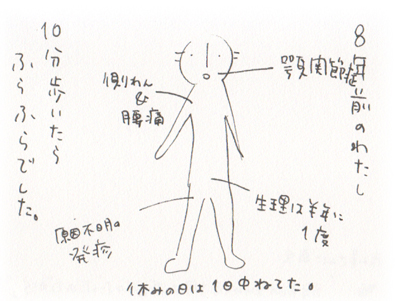 8年前のわたし
顎関節症
側わん
&
腰痛
生理は半年に
1度
原因不明
発疹
10分歩いたら
ふらふらでした。
休みの日は1日中ねてた。